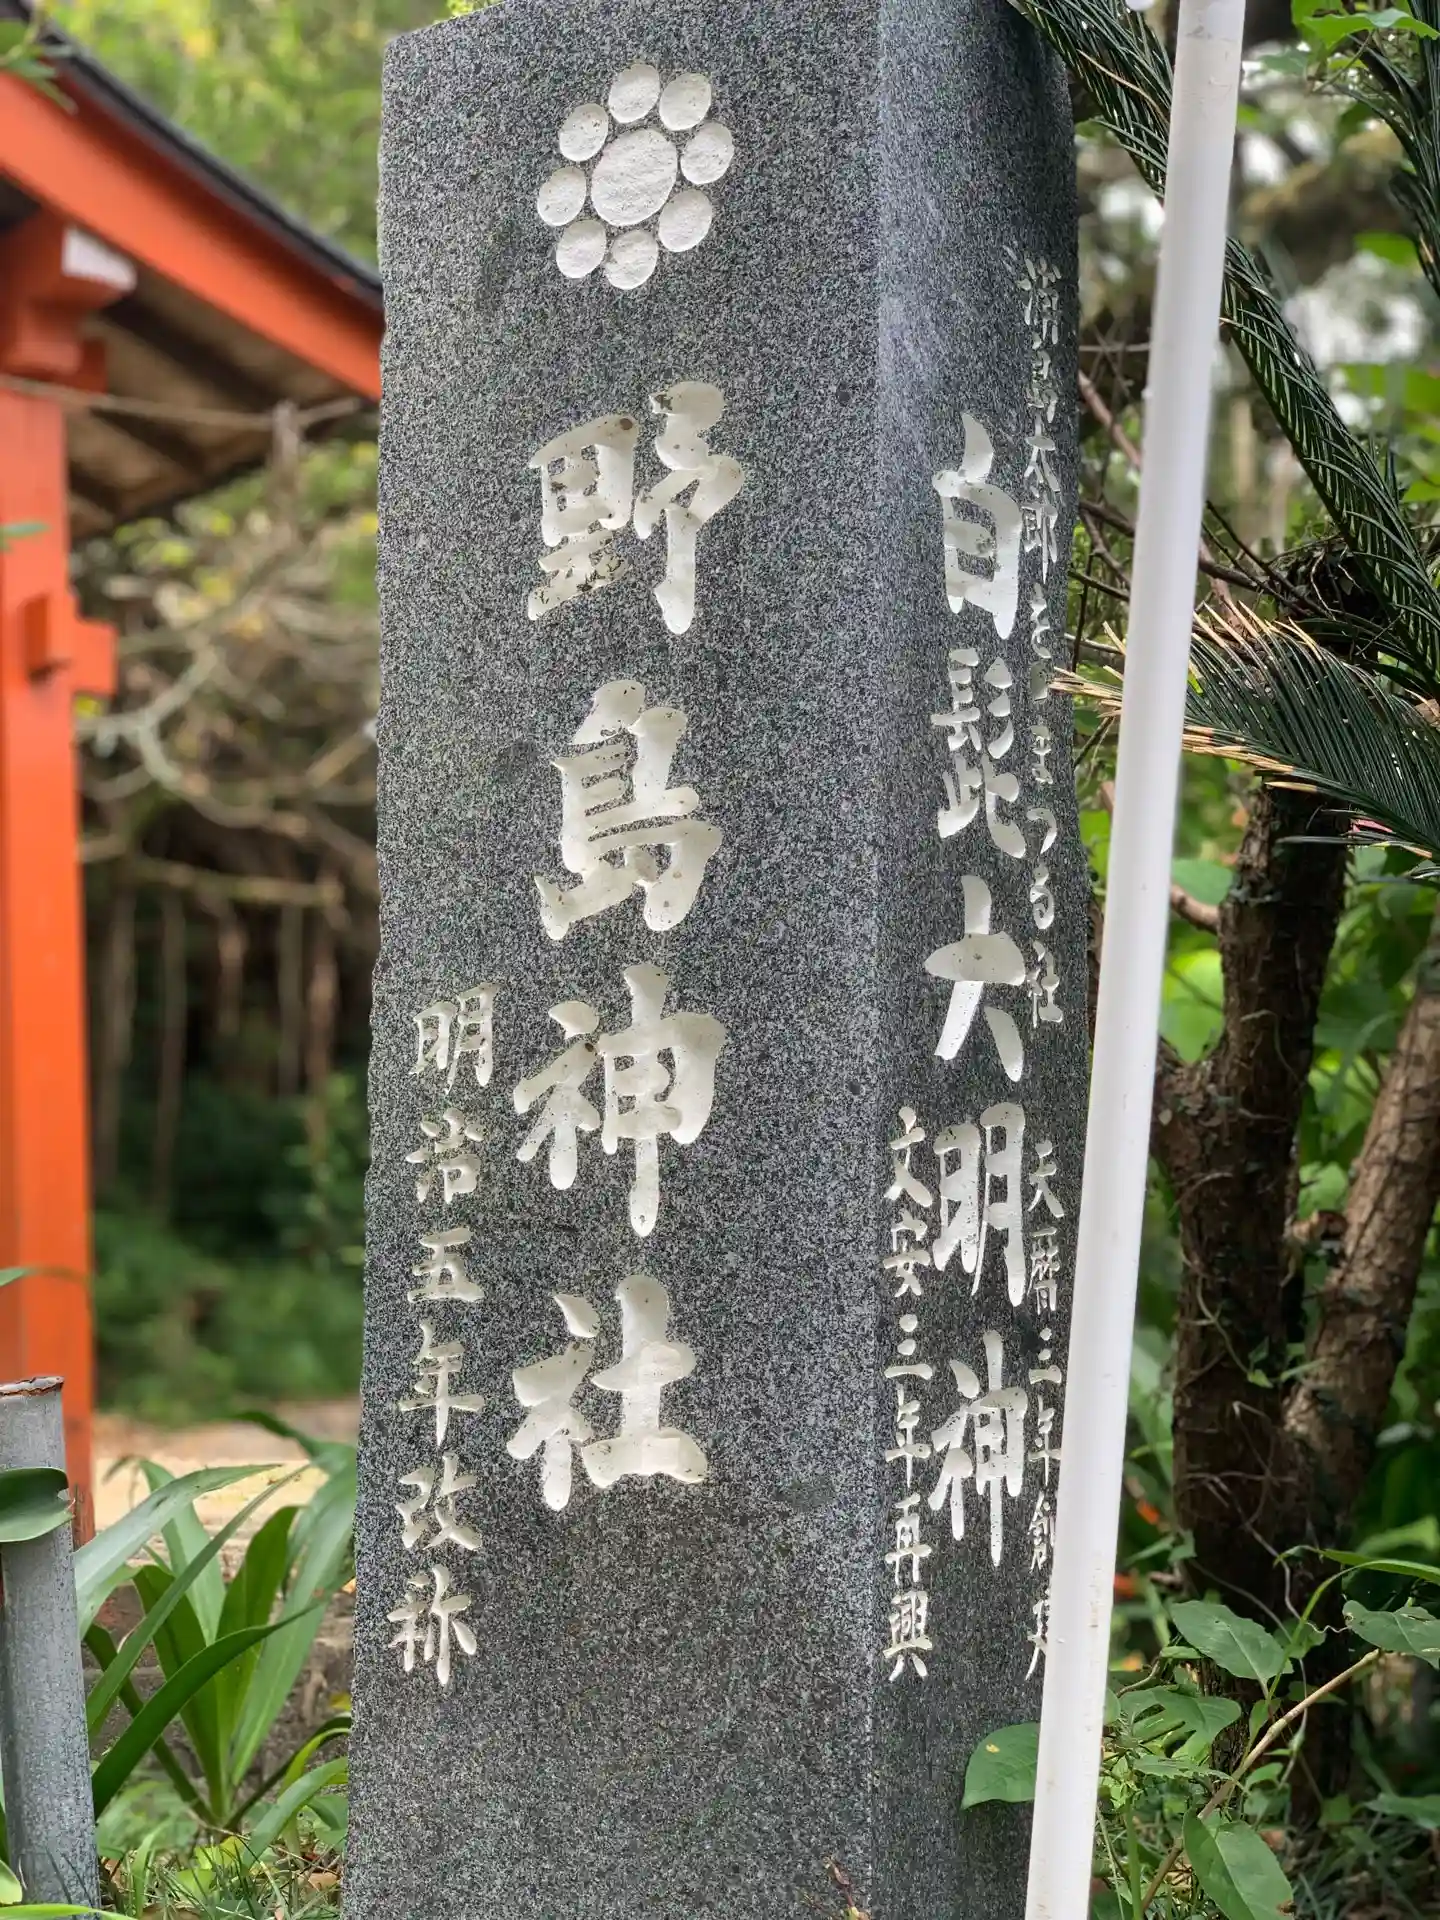 野島神社
明治五年改称
浦島太郎をまつる社
白髭大明神
天暦三年創建
文安三年再興